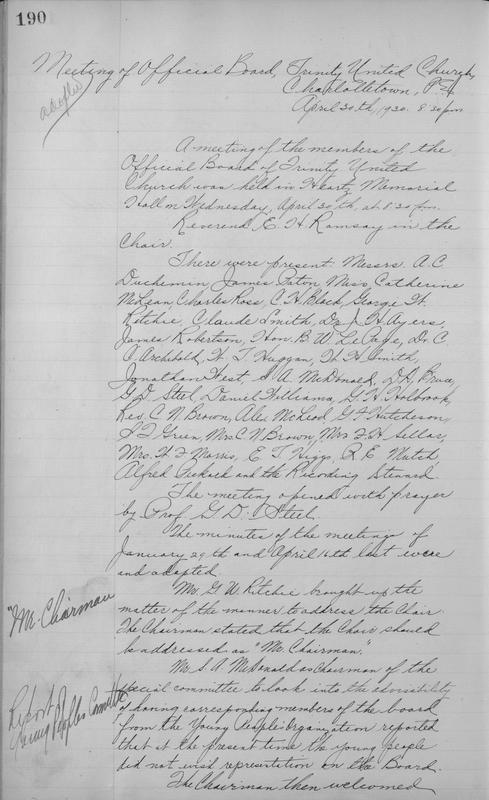 190
Meeting of Official Board, Trinity United Church,
Charlottetown, P.E.I.
adopted
April 30th, 1930. 8:30 pm
A meeting of the members of the
Official Board of Trinity United
Church was held in Heartz Memorial
Hall on Wednesday, April 30th, at 8:30 pm.
Reverend E. H. Ramsay in the
Chair.
There were present Messrs. A. C.
Duchemin, James Paton, Miss Catherine
McLean, Charles Ross, C. H. Black, George W.
Ritchie, Claude Smith, Dr. J. H. Ayers,
James Robertson, Hon. B. W. LePage, Dr. C.
A. Archibald, W. T. Huggan, W. H. Smith,
Jonathan West, S. A. McDonald, D. L. Bruce,
G. D. Steel, Daniel Williams, G. H. Holbrook,
Rev. C. N. Brown, Alec McLeod, G. F. Hutcheson,
J. T. Green, Mrs C. N. Brown, Mrs F. H. Sellar,
Mrs. W. F. Morris, E. T. Higgs, R. E. Mutch,
Alfred Pickard and the Recording Steward.
The meeting opened with prayer
by Prof. G. D. Steel.
The minutes of the meetings of
January 29th and April 16th last were
and adopted.
"Mr. Chairman
Mr. G. W. Ritchie brought up the
matter of the manner to address the Chair.
The Chairman stated that the Chair should
be addressed as "Mr. Chairman."
Report
Young Peoples Committee
Mr. S. A. McDonald as Chairman of the
special committee to look into the advisability
of having corresponding members of the board
from the Young People's Organization reported
that at the present time the young people
did not wish representation on the Board.
The Chairman then welcomed